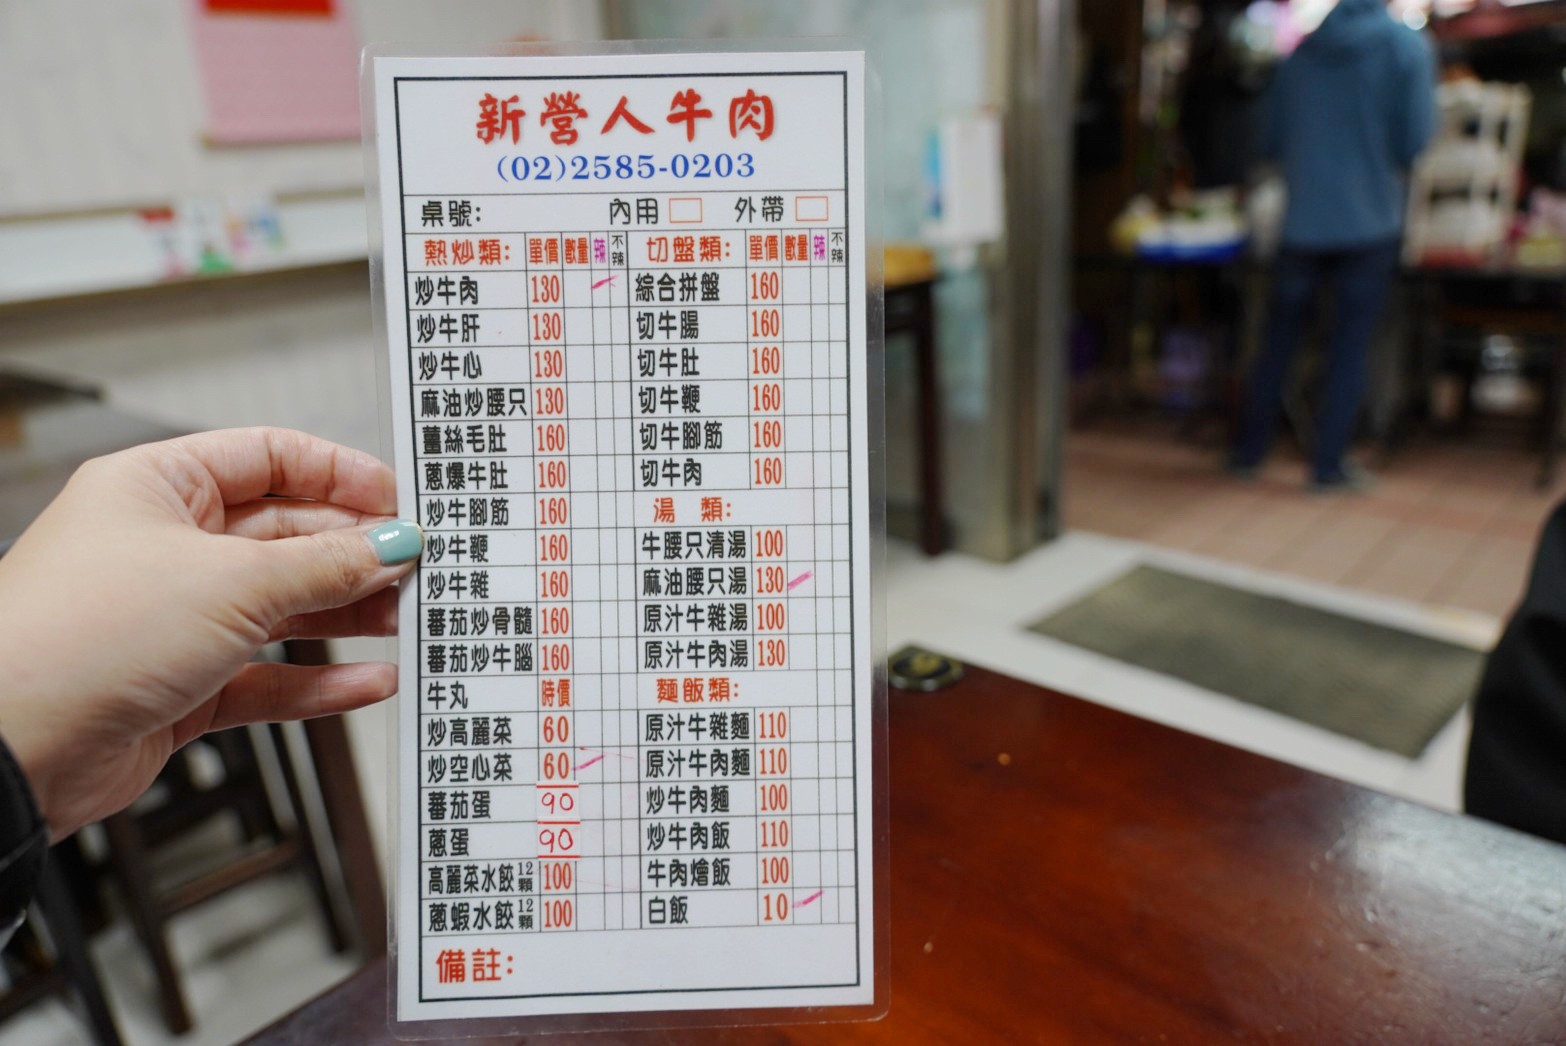 新營人牛肉
(02)2585-0203
桌號: 內用 外帶
熱炒類: 單價 數量 辣 不辣
炒牛肉 130
炒牛肝 130
炒牛心 130
麻油炒腰只 130
薑絲毛肚 160
蔥爆牛肚 160
炒牛腳筋 160
炒牛鞭 160
炒牛雜 160
蕃茄炒骨髓 160
蕃茄炒牛腦 160
牛丸 時價
炒高麗菜 60
炒空心菜 60
蕃茄蛋 90
蔥蛋 90
高麗菜水餃12顆 100
蔥蝦水餃12顆 100
切盤類: 單價 數量 辣 不辣
綜合拼盤 160
切牛腸 160
切牛肚 160
切牛鞭 160
切牛腳筋 160
切牛肉 160
湯類:
牛腰只清湯 100
麻油腰只湯 130
原汁牛雜湯 100
原汁牛肉湯 130
麵飯類:
原汁牛雜麵 110
原汁牛肉麵 110
炒牛肉麵 100
炒牛肉飯 110
牛肉燴飯 100
白飯 10
備註: